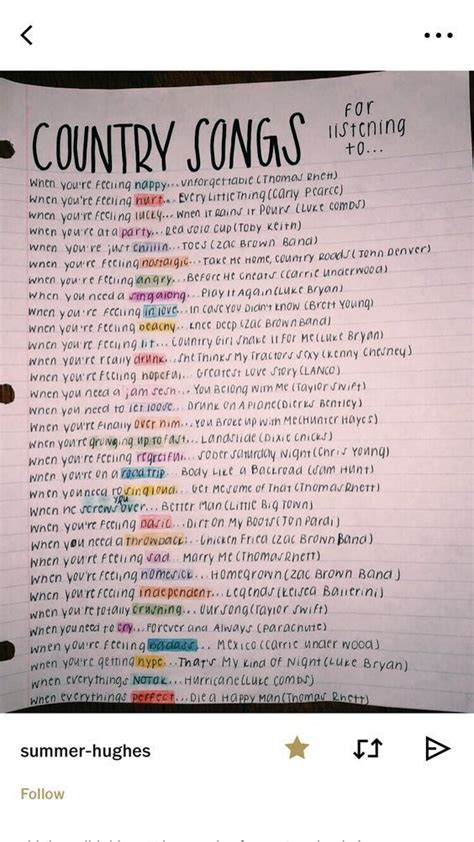 COUNTRY SONGS for listening to...
When you're feeling happy... Unforgettable (Thomas Rhett)
When you're feeling hurt... Every Little Thing (Carly Pearce)
When you're feeling lucky... When it Rains it Pours (Luke Combs)
When you're at a party... Red Solo Cup (Toby Keith)
When you're just chillin... Toes (Zac Brown Band)
When you're feeling nostalgic... Take Me Home, Country Roads (John Denver)
When you're feeling angry... Before He Cheats (Carrie Underwood)
When you need a singalong... Play it Again (Luke Bryan)
When you're feeling in love... In Case You Didn't Know (Brett Young)
When you're feeling beachy... Knee Deep (Zac Brown Band)
When you're feeling lit... Country Girl Shake it For Me (Luke Bryan)
When you're really drunk... She Thinks My Tractors Sexy (Kenny Chesney)
When you're feeling hopeful... Greatest Love Story (LANCO)
When you need a jam sesh... You Belong With Me (Taylor Swift)
When you need to let loose... Drunk on a Plane (Dierks Bentley)
When you're finally over him... You Broke Up With Me (Hunter Hayes)
When you're growing up to fast... Landslide (Dixie Chicks)
When you're feeling regretful... Sober Saturday Night (Chris Young)
When you're on a road trip... Body Like a Backroad (Sam Hunt)
When you need to sing loud... Get Me Some of That (Thomas Rhett)
When he screws you over... Better Man (Little Big Town)
When you're feeling basic... Dirt on My Boots (Jon Pardi)
When you need a throwback... Chicken Fried (Zac Brown Band)
When you're feeling sad... Marry Me (Thomas Rhett)
When you're feeling homesick... Homegrown (Zac Brown Band)
When you're feeling independent... Legends (Kelsea Ballerini)
When you're totally crushing... Our Song (Taylor Swift)
When you need to cry... Forever and Always (Parachute)
When you're feeling badass... Mexico (Carrie Underwood)
When you're getting hype... That's My Kind of Night (Luke Bryan)
When everythings NOT OK... Hurricane (Luke Combs)
When everythings perfect... Die a Happy Man (Thomas Rhett)
summer-hughes
Follow